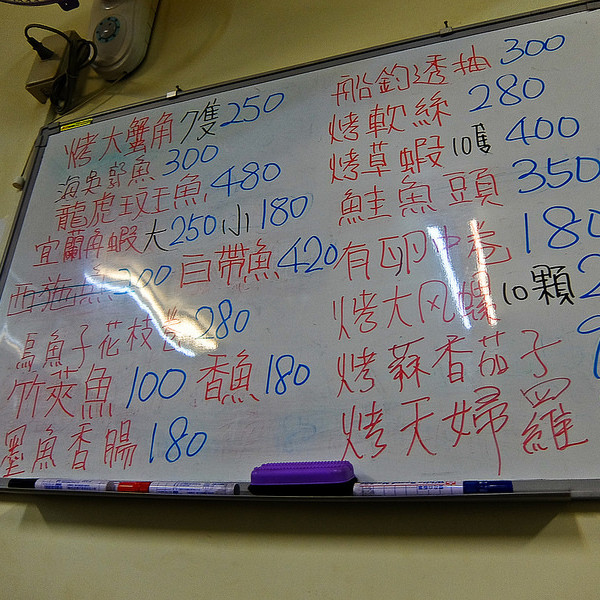 烤大蟹角7隻250
海吳郭魚300
龍虎玟王魚480
宜蘭角蝦大250小180
西海魚300 白帶魚420
烏魚子花枝卷280
竹莢魚100 香魚180
墨魚香腸180
船釣透抽300
烤軟絲280
烤草蝦10隻400
鮭魚頭350
有卵中卷180
烤大风螺10顆
烤蘇香茄子
烤天婦羅